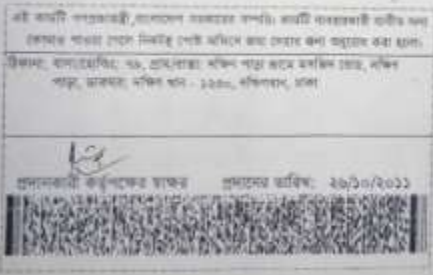 এই কার্ডটি গণপ্রজাতন্ত্রী বাংলাদেশ সরকারের সম্পত্তি। কার্ডটি ব্যবহারকারী ব্যতীত অন্য
কোথাও পাওয়া গেলে নিকটস্থ পোস্ট অফিসে জমা দেবার জন্য অনুরোধ করা হলো।
ঠিকানা: বাসা/হোল্ডিং: ৭৮, গ্রাম/রাস্তা: দক্ষিণ পাড়া জামে মসজিদ রোড, দক্ষিণ
পাড়া, ডাকঘর: দক্ষিণ খান - ১২৩০, দক্ষিণখান, ঢাকা
প্রদানকারী কর্তৃপক্ষের স্বাক্ষর প্রদানের তারিখ: ২৬/১০/২০১১